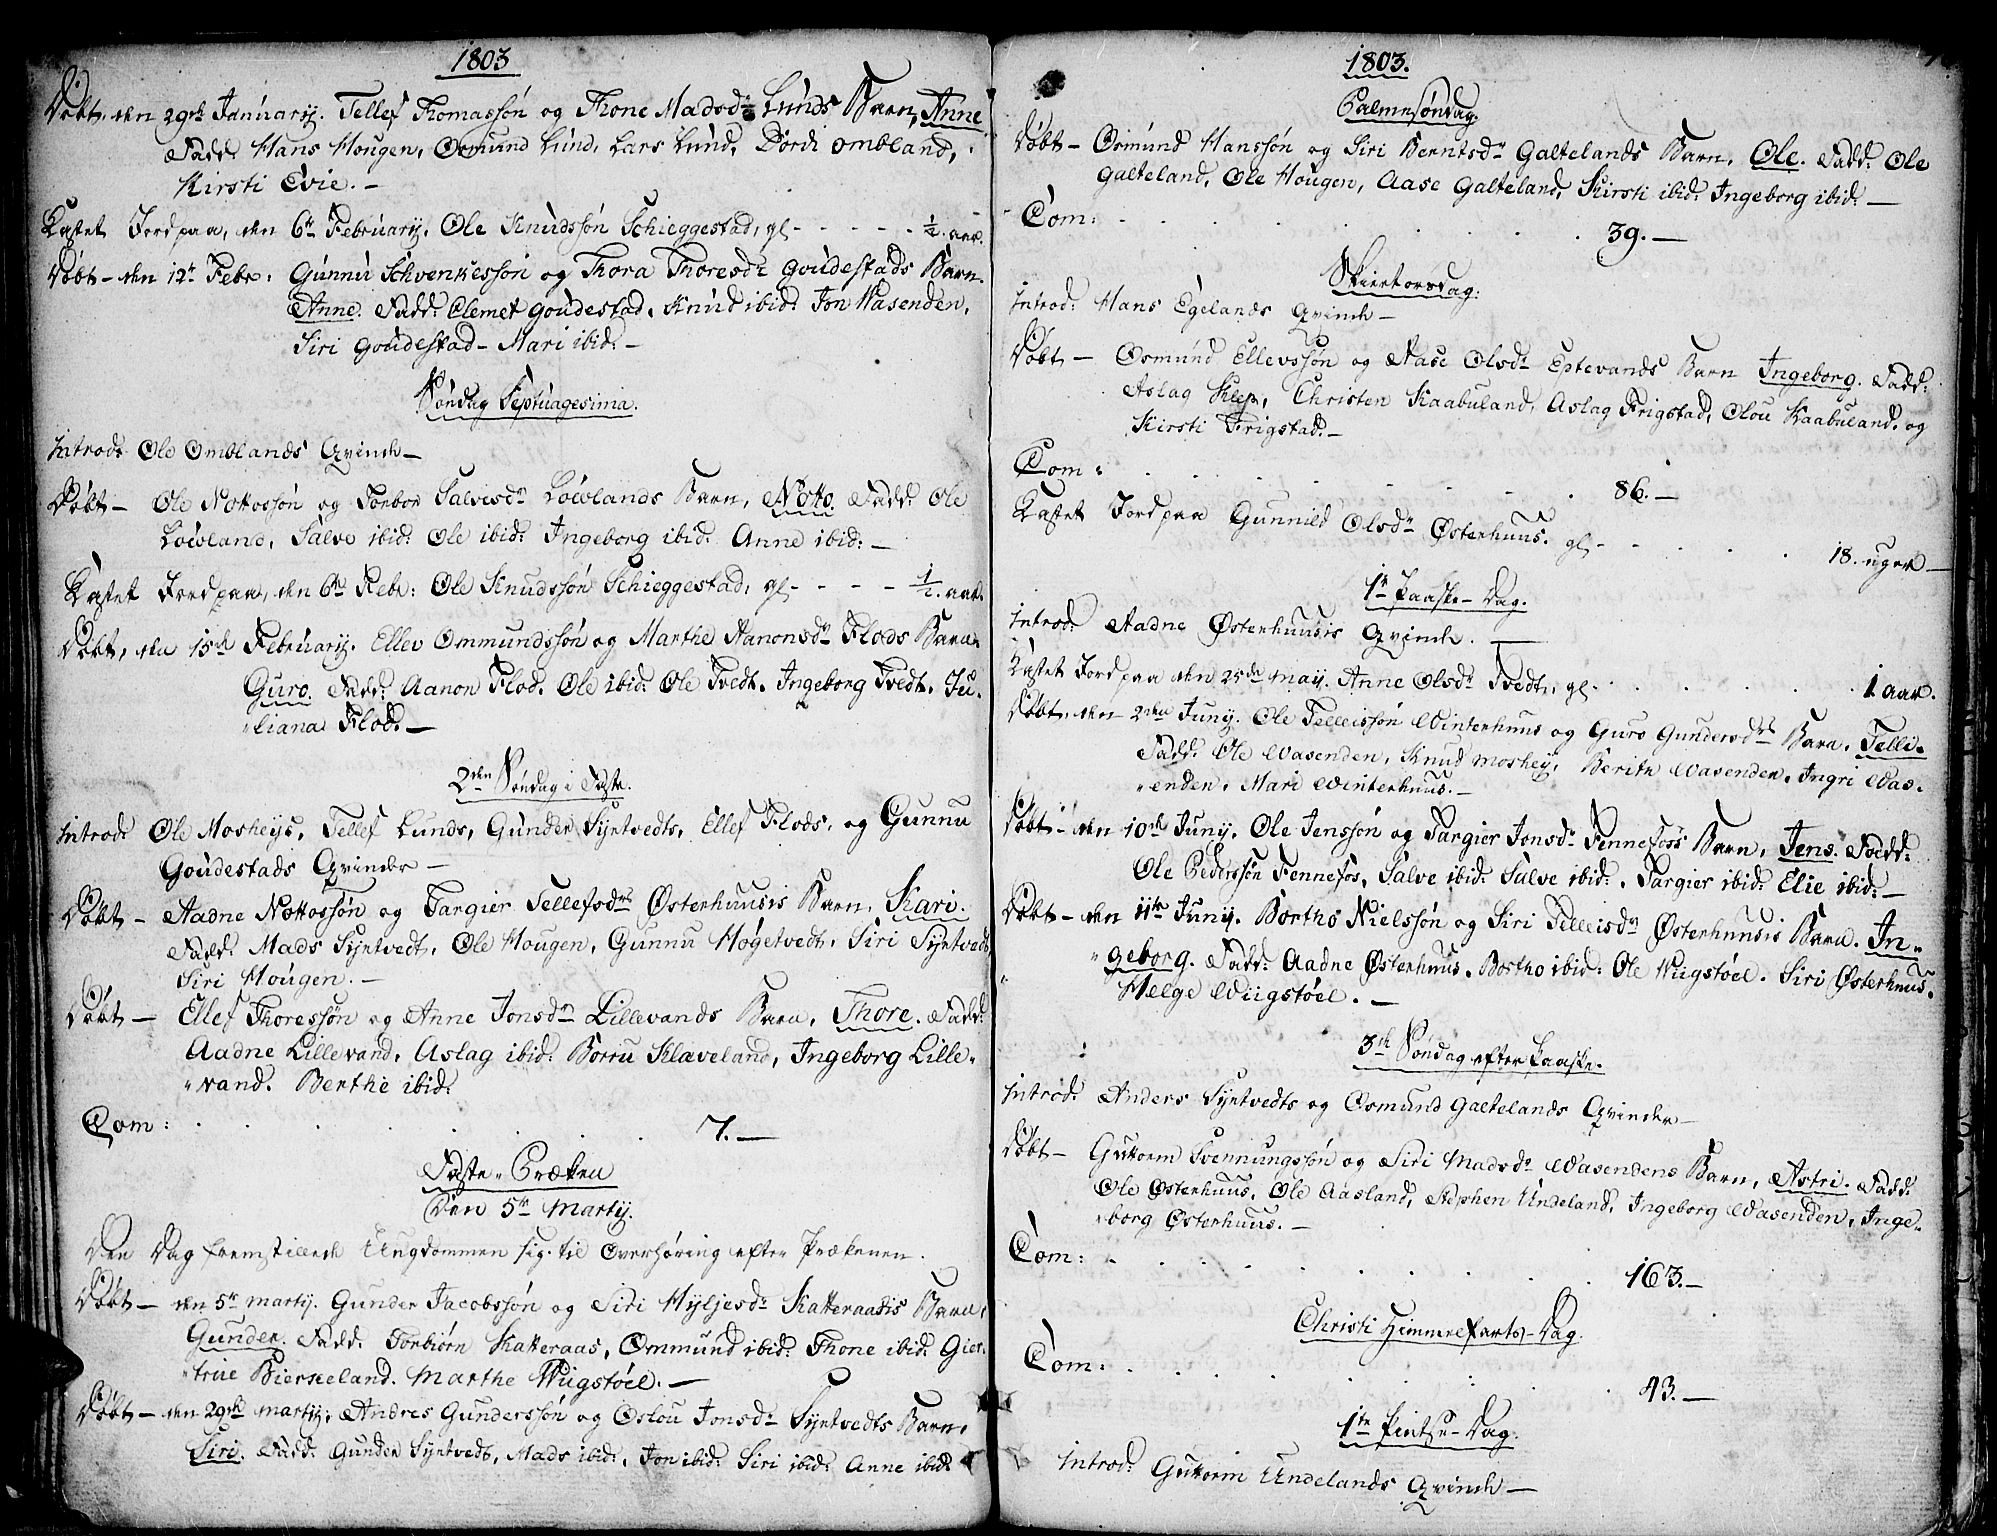 1803
Döbt, den 29de Januarij. Tellef Thomassön og Thone Madsdr Lunds Barn, Anne
Fadd: Hans Hougen, Osmund Lund, Lars Lund, Dordi Ombland,
Kirsti Evie. —
Kastet Jord paa, den 6te Februarij. Ole Knudssön Schieggestad, gl - - - - - ½. aar.
Döbt - den 12te Febr: Gunnu Schvenkessön og Thora Thoresdr Goudestads Barn.
Anne. Fadd: Clemet Goudestad, Knud ibid: Jon Wasenden,
Siri Goudestad - Mari ibid: —
Söndag Septuagesima.
Introd: Ole Omblands Qvinde —
Döbt - Ole Nottossön og Torbor Salvisdr Löwlands Barn, Notto. Fadd: Ole
Löwland, Salve ibid: Ole ibid: Ingeborg ibid: Anne ibid: —
Kastet Jord paa, den 6te Febr: Ole Knudssön Schieggestad, gl - - - - ½. aar.
Döbt, den 15de Februarij. Ellev Ommundssön og Marthe Aanonsdr Flods Barn
Guro. Fadd: Aanon Flod. Ole ibid: Ole Tvedt. Ingeborg Tvedt. Ju-
"liana Flod. —
2den Söndag i Faste.
Introd: Ole Mosheys, Tellef Lunds, Gunder Syntvedts, Ellef Flods, og Gunnu
Goudestads Qvinder —
Döbt - Aadne Nottossön og Targier Tellefsdr Østerhuusis Barn, Kari.
Fadd: Mads Syntvedt, Ole Hougen, Gunnu Högetvedt, Siri Syntvedt
Siri Hougen. —
Döbt — Ellef Thoressön og Anne Jonsdr Lillevands Barn, Thore. Fadd:
Aadne Lillevand, Aslag ibid: Borru Klaveland, Ingeborg Lille-
"vand. Berthe ibid:
Com: . . . . . . . 7. —
Faste-Præken
Den 5te Martij.
Den Dag fremstillede Ungdommen sig til Overhöring efter Prækenen.
Döbt — den 5te Martij. Gunder Jacobssön og Siri Hyljesdr Katteraasis Barn,
Gunder. Fadd: Torbiörn Katteraas, Ommund ibid: Thone ibid: Gier-
"true Bierkeland. Marthe Wiigstöel. —
Döbt — den 29de Martij, Andres Gunderssön og Oslou Jonsdr Syntvedts Barn,
Siri. Fadd: Gunder Syntvedt, Mads ibid:, Jon ibid: Siri ibid: Anne ibid:
1803.
Palmesöndag.
Döbt — Osmund Hanssön og Siri Berntsdr Galtelands Barn, Ole. Fadd: Ole
Galteland, Ole Hougen, Aase Galteland, Kirsti ibid: Ingeborg ibid: —
Com: . . . . . . . 39. —
Skiertorsdag.
Introd: Hans Egelands Qvinde —
Döbt — Osmund Ellevssön og Aase Olsdr Eptevands Barn Ingeborg. Fadd:
Aslag Klep, Christen Kaabuland, Aslag Frigstad, Olou Kaabuland. og
Kirsti Frigstad. —
Com: . . . . . . . 86. —
Kastet Jord paa Gunnild Olsdr Østerhuus. gl - - - - . . 18. uger —
1te Paaske-Dag.
Introd: Aadne Østerhuusis Qvinde. —
Kastet Jord paa den 25de May. Anne Olsdr Tvedt, gl - . . . . . . 1 aar.
Döbt, den 2den Junij. Ole Telleissön Winterhuus og Guro Gundersdrs Barn, Telli.
Fadd: Ole Wasenden, Knud Moshey, Berite Wasenden, Ingri Was-
"enden, Mari Winterhuus. —
Döbt - den 10de Junij. Ole Jenssön og Targier Jonsdr Fennefoss Barn, Jens. Fadd:
Ole Pederssön Fennefos, Salve ibid: Salve ibid:, Targier ibid: Elie ibid: —
Döbt - den 11te Junij. Bortho Nielssön og Siri Telleisdr Østerhuusis Barn. In-
"geborg. Fadd: Aadne Østerhuus. Bortho ibid: Ole Wiigstöel. Siri Østerhuus.
Helge Wiigstöel. —
3de Söndag efter Paaske.
Introd: Anders Syntvedts og Osmund Galtelands Qvinder —
Döbt — Guttorm Svennungssön og Siri Madsdr Wasendens Barn, Astri. Fadd:
Ole Østerhuus, Ole Aasland, Stephen Undeland, Ingeborg Wasenden, Inge-
"borg Østerhuus. —
Com: . . . . . . . 163. —
Christi Himmelfarts-Dag.
Com: . . . . . . . 43. —
1te Pintse-Dag.
Introd: Guttorm Undelands Qvinde —